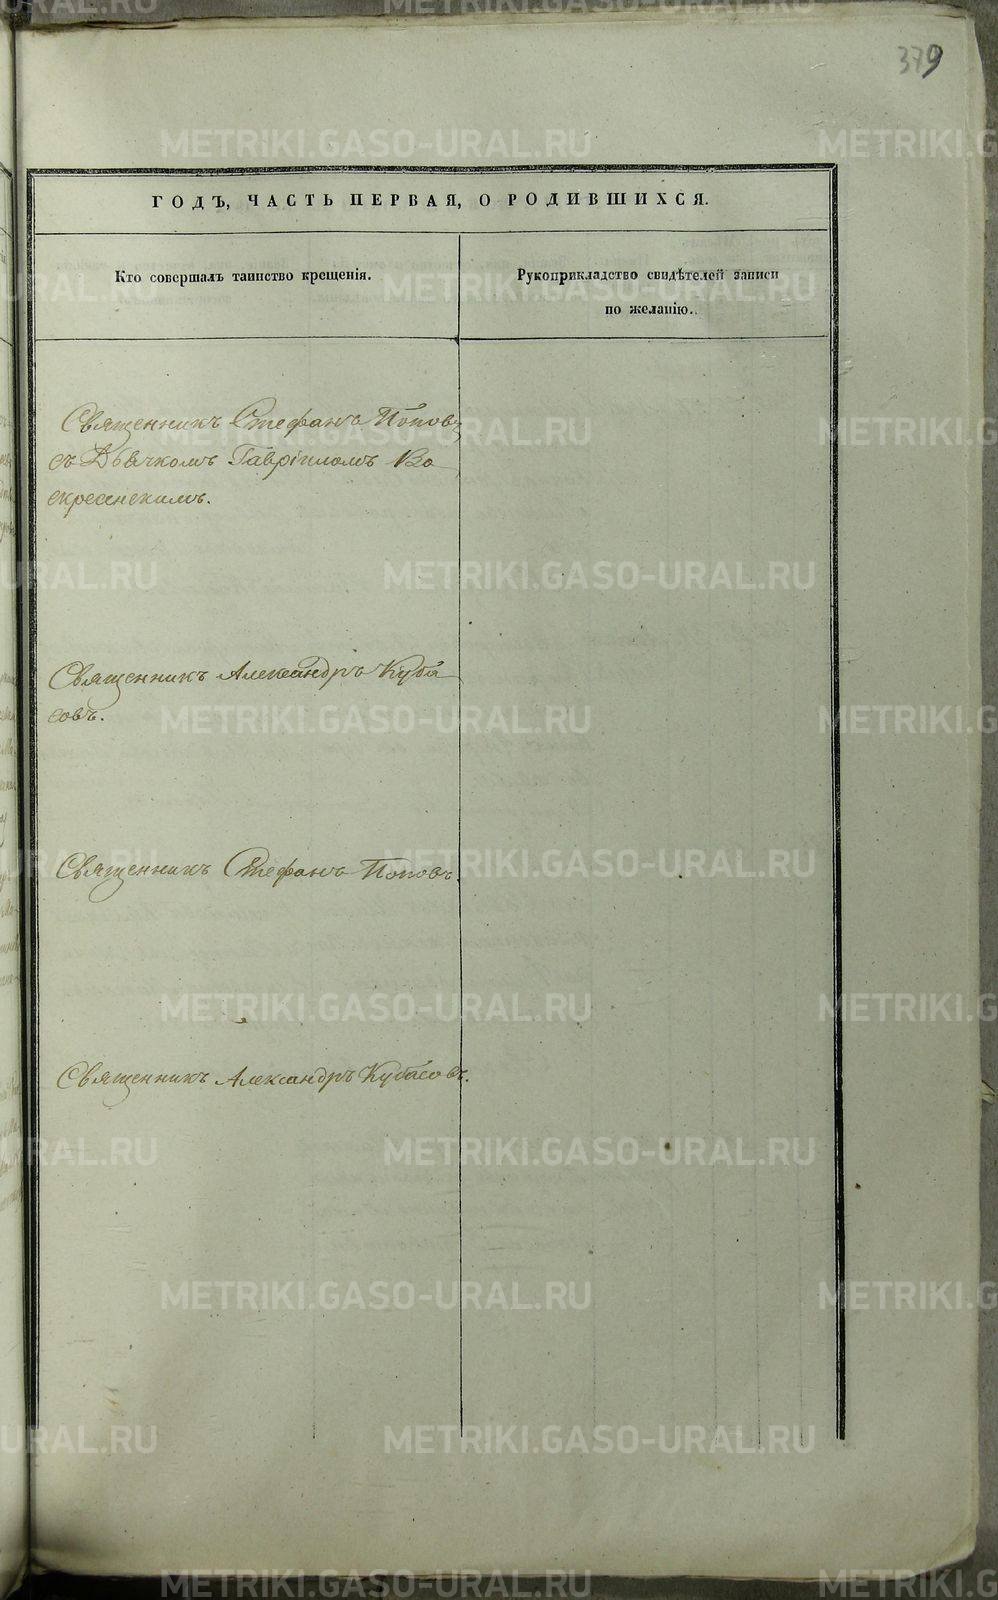 379
ГОДЪ, ЧАСТЬ ПЕРВАЯ, О РОДИВШИХСЯ.
Кто совершалъ таинство крещенія.
Рукоприкладство свидѣтелей записи
по желанію.
Священникъ Стефанъ Поповъ
съ Дьячкомъ Гавріиломъ Во
скресенскимъ.
Священникъ Александръ Куба
совъ.
Священникъ Стефанъ Поповъ.
Священникъ Александръ Кубасовъ.
METRIKI.GASO-URAL.RU